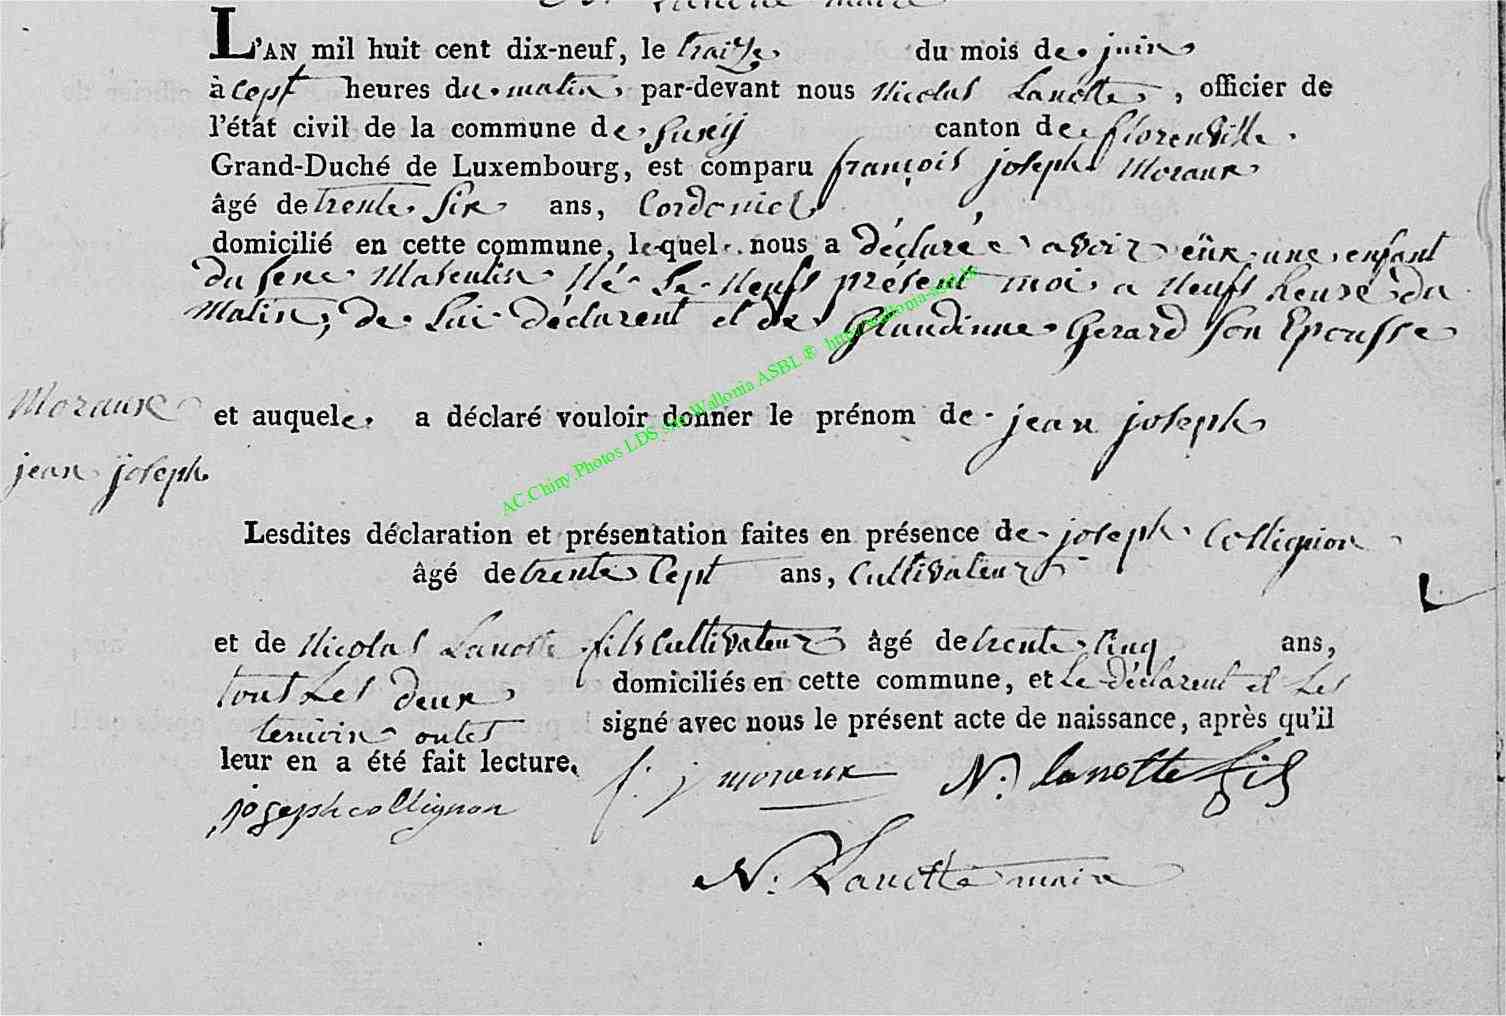 L'AN mil huit cent dix-neuf, le traize du mois de juin
à cept heures du matin, par-devant nous Nicolas Lanotte, officier de
l'état civil de la commune de Suxÿ canton de florenville
Grand-Duché de Luxembourg, est comparu françois joseph Moraux
âgé de trente Six ans, Cordoniel
domicilié en cette commune, lequel nous a déclaré avoir eüx une enfant
du sexe Masculin Né Le Neufs présent moi a Neufs heure du
Matin, de Lui déclarent et de Glaudinne Gerard son Epousse
Moraux
et auquel a déclaré vouloir donner le prénom de jean joseph
jean joseph
Lesdites déclaration et présentation faites en présence de joseph Collignion
âgé de trente Cept ans, Cultivateur
et de Nicolas Lanotte fils Cultivateur âgé de trente Cinq ans,
tout Les deux domiciliés en cette commune, et Le déclarent et Les
temoin ontes signé avec nous le présent acte de naissance, après qu'il
leur en a été fait lecture.
f. j moraux N. lanotte fils
joseph collignon
N. Lanotte maire
AC.Chiny.Photos LDS Wallonia ASBL ®